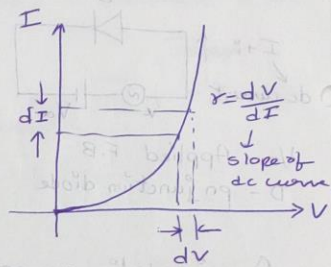 I
dI
r = dV/dI
slope of
dc curve
V
dV